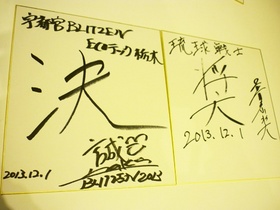 宇都宮BLITZEN
栃木
決
BLITZEN 2013
2013.12.1
琉球戦士
奨
2013.12.1